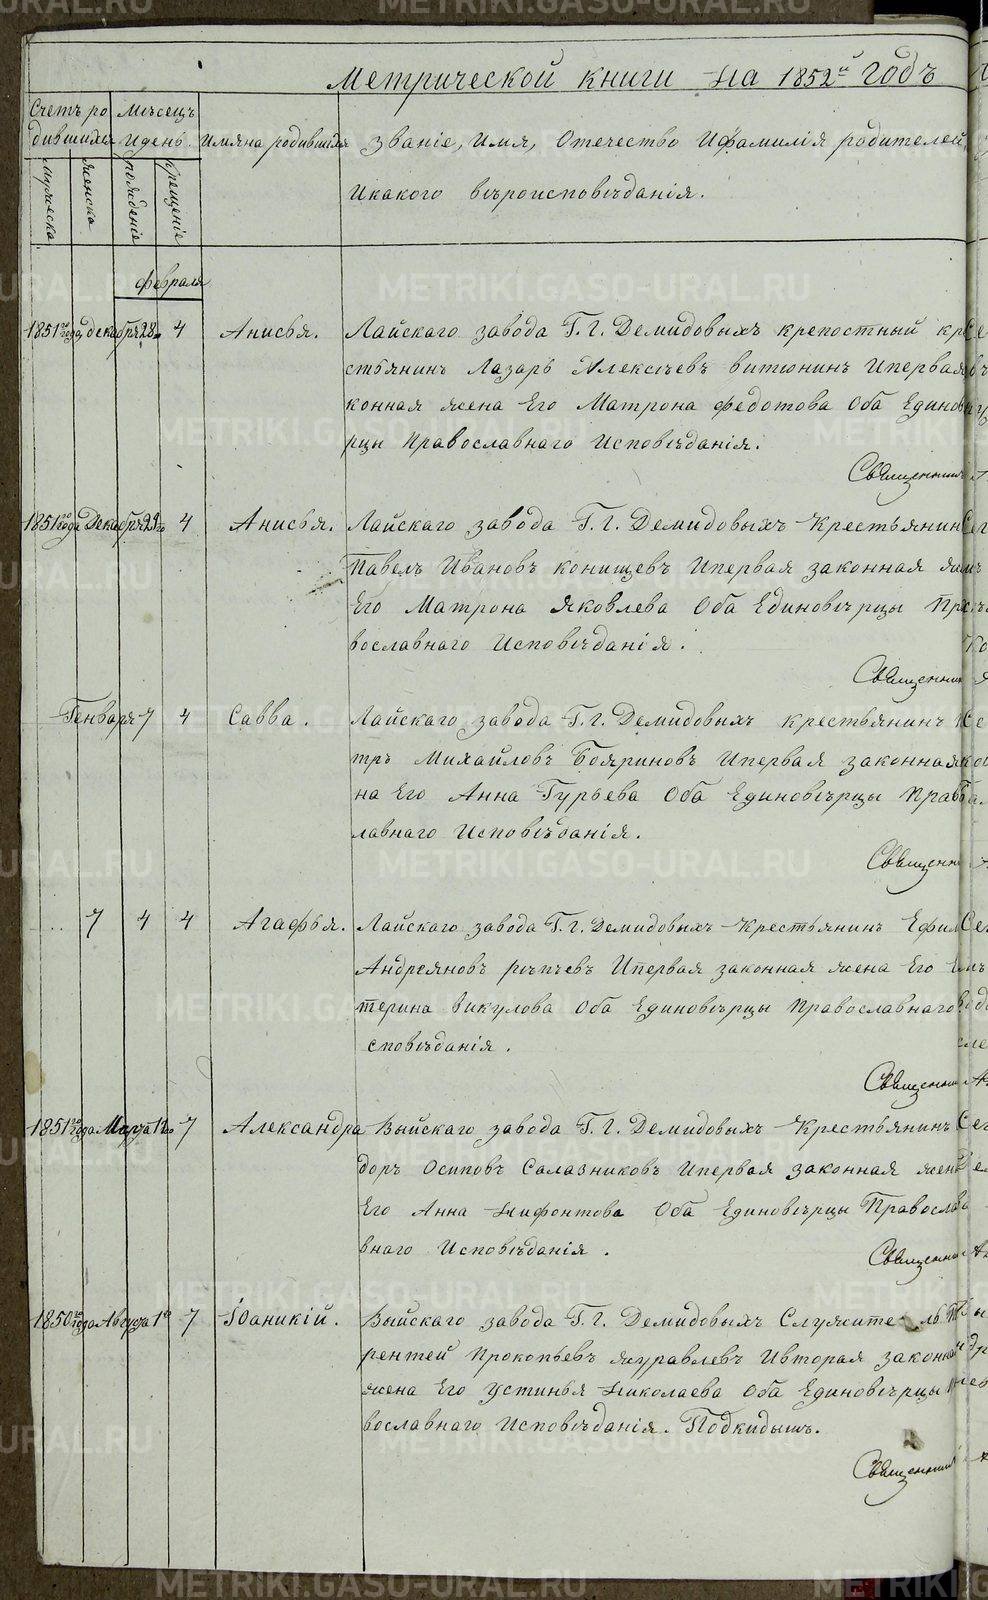 Метрической книги на 1852й Годъ
Счетъ ро Мѣсецъ
дившихся идень. имяна родившихся званіе, имя, Отечество Ифамилія родителей
Икакого вѣроисповѣданія.
мужеска женска рожденіе крещеніе
февраля
1851го года декабря 28го 4 Анисья. Лайскаго завода Г. Г. Демидовыхъ крепостный кре
стьянинъ Лазарь Алексѣевъ витюнинъ Иперваяза
конная жена Его Матрона федотова Оба Единовѣ
рцы Православнаго Исповѣданія.
Священник
1851го года Декабря 29го 4 Анисья. Лайскаго завода Г. Г. Демидовыхъ Крестьянин
Павелъ Ивановъ конищевъ Ипервая законная жен
Его Матрона Яковлева Оба Единовѣрцы Пра
вославнаго Исповѣданія.
Священник
Генваря 7 4 Савва. Лайскаго завода Г. Г. Демидовыхъ крестьянинъ
тръ Михайловъ Бояриновъ Ипервая законная
на Его Анна Гурьева Оба Единовѣрцы Правос
лавнаго Исповѣданія.
Священн
7 4 4 Агафья. Лайскаго завода Г. Г. Демидовыхъ Крестьянинъ Ефим
Андреяновъ рѣпчевъ Ипервая законная жена Его Е
терина викулова Оба Единовѣрцы Православнаго
сповѣданія.
Священни
1851го года Марта 12го 7 Александра Выйскаго завода Г. Г. Демидовыхъ Крестьянинъ
доръ Осиповъ Салазниковъ Ипервая законная жен
Его Анна Нифонтова Оба Единовѣрцы Правосла
внаго Исповѣданія.
Священни
1850го года Августа 1го 7 Іоаникій. Выйскаго завода Г. Г. Демидовыхъ Служитель Те
рентей Прокопьевъ журавлевъ Ивторая законная
жена Его Устинья Николаева Оба Единовѣрцы Пра
вославнаго Исповѣданія. Подкидышъ.
Священник
METRIKI.GASO-URAL.RU